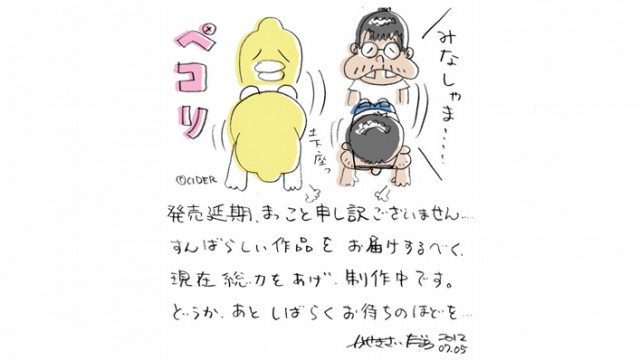 ペコリ
みなしゃま……
土下座っ
©CIDER
発売延期、まっこと申し訳ございません…
すんばらしい作品を お届けするべく、
現在 総力を あげ、制作中です。
どうか、あと しばらく お待ちのほどを…
2012
07.05